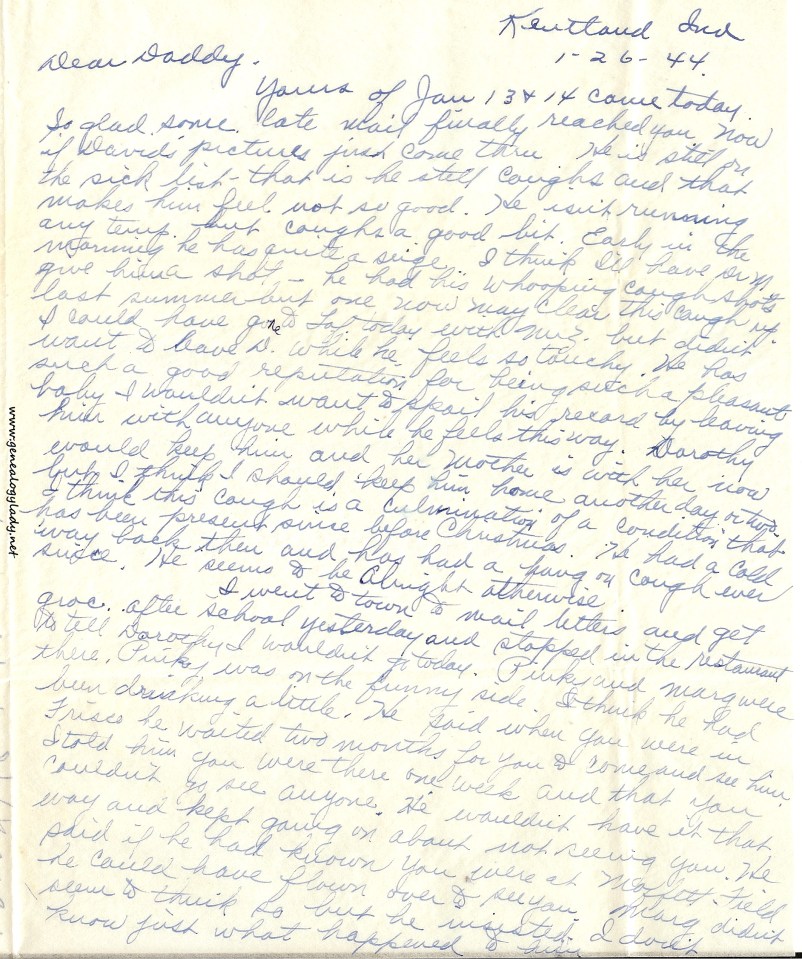 Kentland Ind
1-26-44.
Dear Daddy.
Yours of Jan 13 & 14 came today.
So glad some late mail finally reached you. Now
if David's pictures just come thru. He is still on
the sick list - that is he still coughs and that
makes him feel not so good. He isn't running
any temp. but coughs a good bit. Early in the
morning he has quite a siege. I think I'll have Dr
give him a shot - he had his whooping cough shots
last summer but one now may clear this cough up.
I could have gone to Laf. today with but didn't
want to leave D. while he feels so touchy. He has
such a good reputation for being such a pleasant
baby I wouldn't want to spoil his record by leaving
him with anyone while he feels this way. Dorothy
would keep him and her mother is with her now
but I think I should keep him home another day or two.
I think this cough is a culmination of a condition that
has been present since before Christmas. He had a cold
way back then and has had a hang on cough ever
since. He seems to be alright otherwise.
I went to town to mail letters and get
groc. after school yesterday and stopped in the restaurant
to tell Dorothy I wouldn't go today. Pinky and Marg were
there. Pinky was on the funny side. I think he had
been drinking a little. He said when you were in
Frisco he waited two months for you to come and see him.
I told him you were there one week and that you
couldn't go see anyone. He wouldn't have it that
way and kept going on about not seeing you. He
said if he had known you were at Moffett Field
he could have flown over to see you. Marg didn't
seem to think so but he insisted. I don't
know just what happened to him
www.genealogylady.net